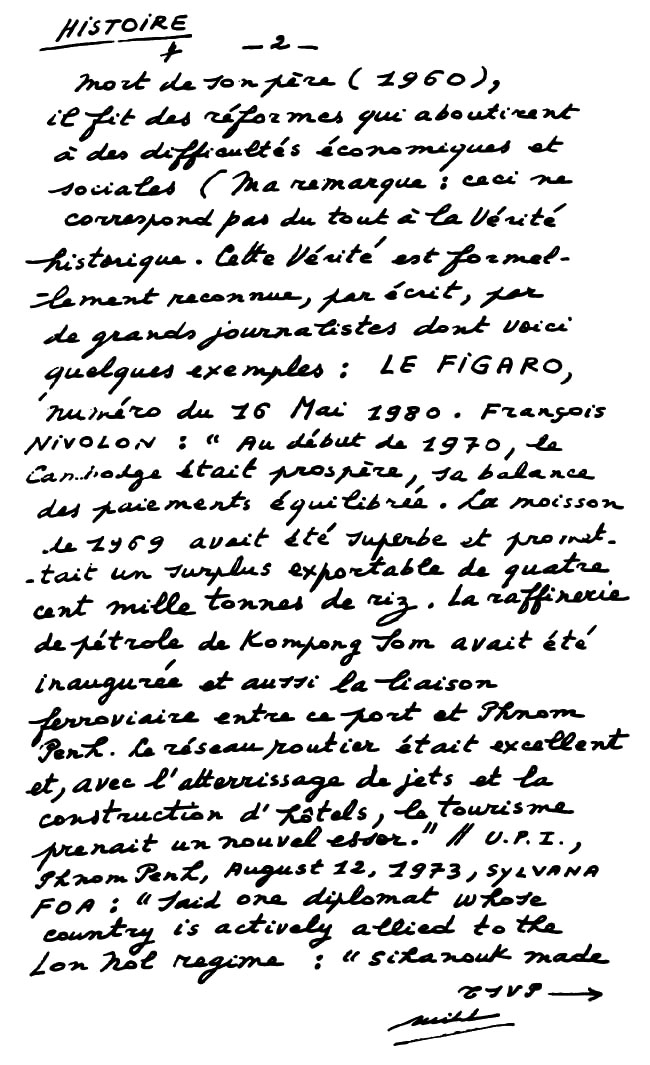 HISTOIRE
— 2 —
Mort de son père ( 1960 ),
il fit des réformes qui aboutirent
à des difficultés économiques et
sociales ( Ma remarque : ceci ne
correspond pas du tout à la Vérité
historique . Cette Vérité est formel-
-lement reconnue, par écrit, par
de grands journalistes dont voici
quelques exemples : LE FIGARO,
numéro du 16 Mai 1980 . François
NIVOLON : " Au début de 1970, le
Cambodge était prospère, sa balance
des paiements équilibrée . La moisson
de 1969 avait été superbe et promet-
-tait un surplus exportable de quatre
cent mille tonnes de riz . La raffinerie
de pétrole de Kompong Som avait été
inaugurée et aussi la liaison
ferroviaire entre ce port et Phnom
Penh. Le réseau routier était excellent
et, avec l'atterrissage de jets et la
construction d'hôtels, le tourisme
prenait un nouvel essor." // U.P.I.,
Phnom Penh, August 12, 1973, SYLVANA
FOA : " Said one diplomat whose
country is actively allied to the
Lon Nol regime : " Sihanouk made
TSVP →